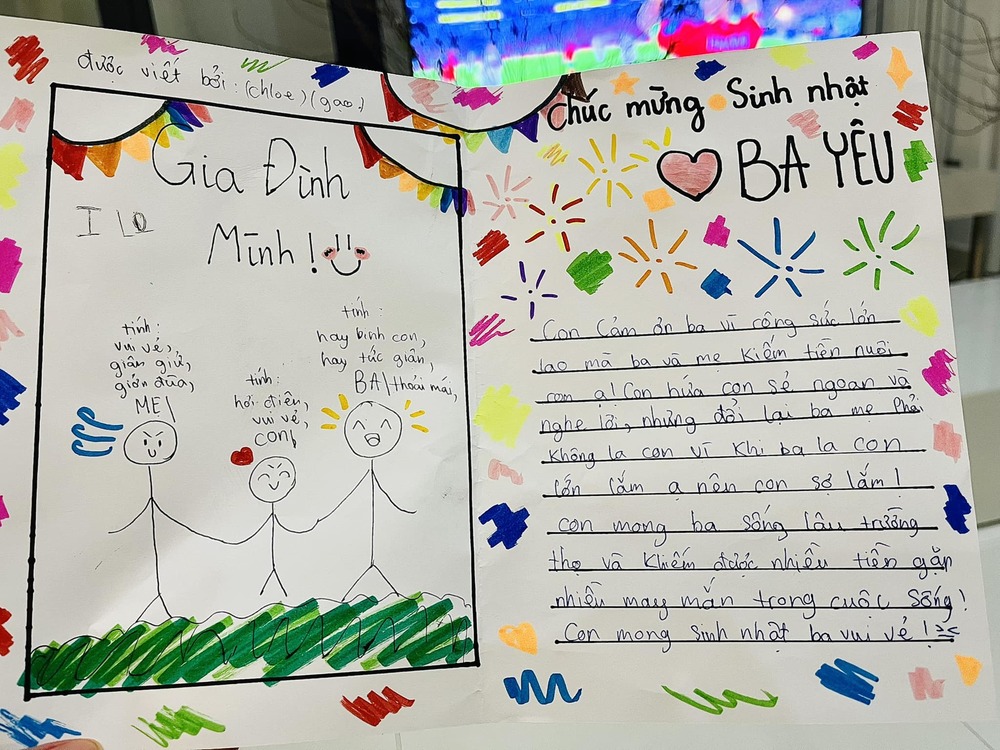 được viết bởi: (chloe) (gạo)
Gia Đình
I LO
Mình!
tính:
vui vẻ,
giận giử,
giỡn đũa,
ME
tính:
hơi điên,
vui vẻ,
CON
tính:
hay binh con,
hay tức giận,
BA thoải mái,
Chúc mừng Sinh nhật
BA YÊU
Con Cảm ơn ba vì công sức lớn
lao mà ba và mẹ kiếm tiền nuôi
con ạ! Con hứa con sẻ ngoan và
nghe lời, nhưng đổi lại ba mẹ phải
không la con vì khi ba la con
lớn lắm ạ nên con sợ lắm!
Con mong ba sống lâu trường
thọ và khiếm được nhiều tiền gặp
nhiều may mắn trong cuộc sống!
Con mong sinh nhật ba vui vẻ! ><